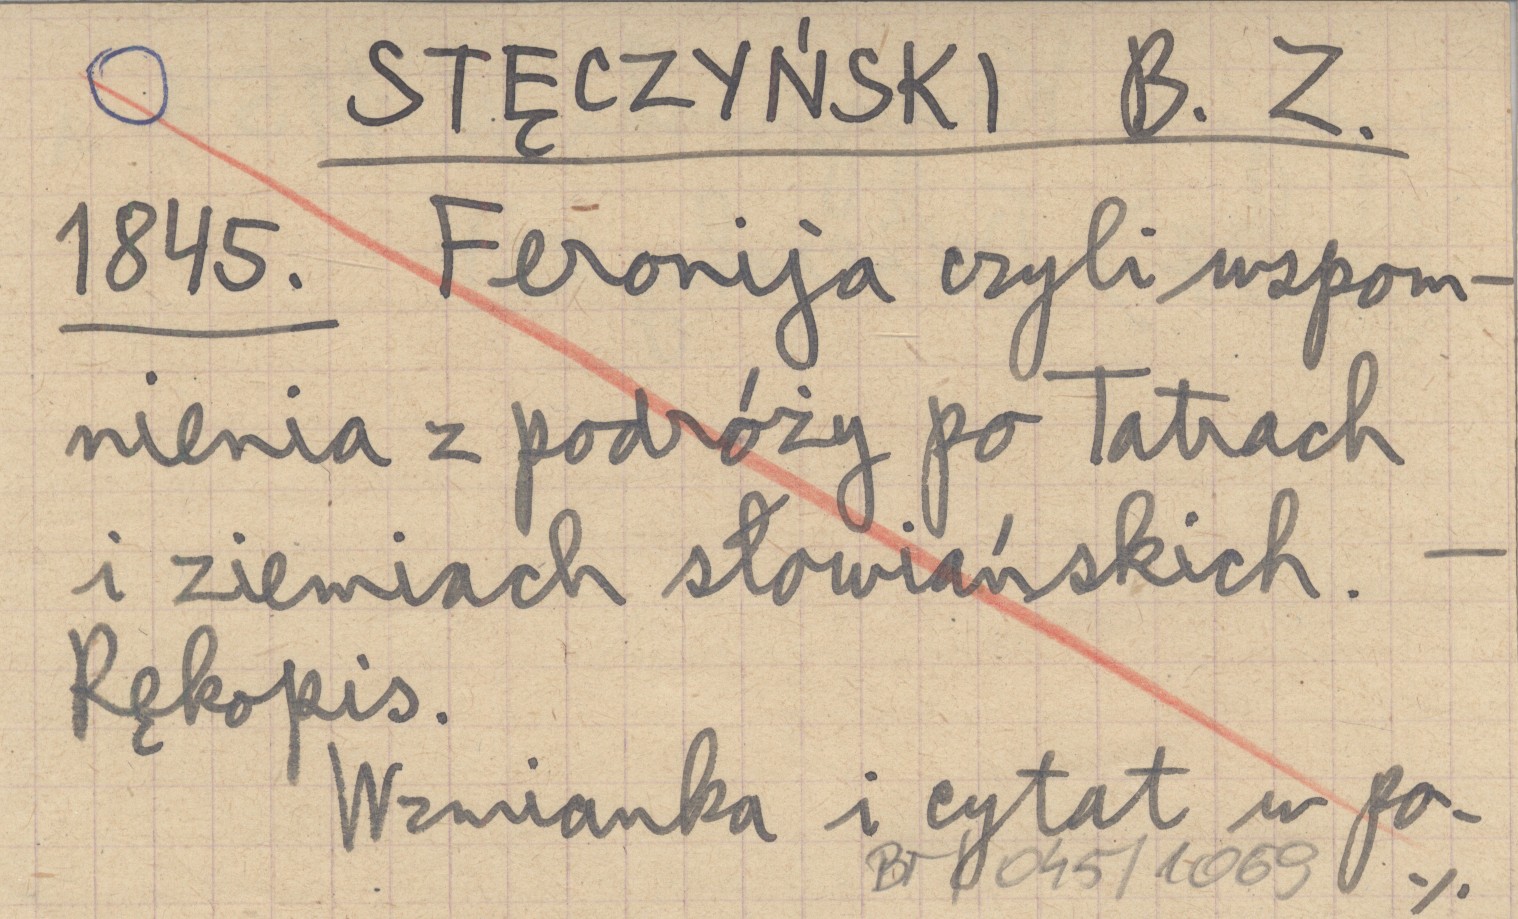 STĘCZYŃSKI B. Z.
1845. Feronija czyli wspom-
nienia z podróży po Tatrach
i ziemiach słowiańskich. —
Rękopis.
Wzmianka i cytat w po-
BT 045/1069 ./.